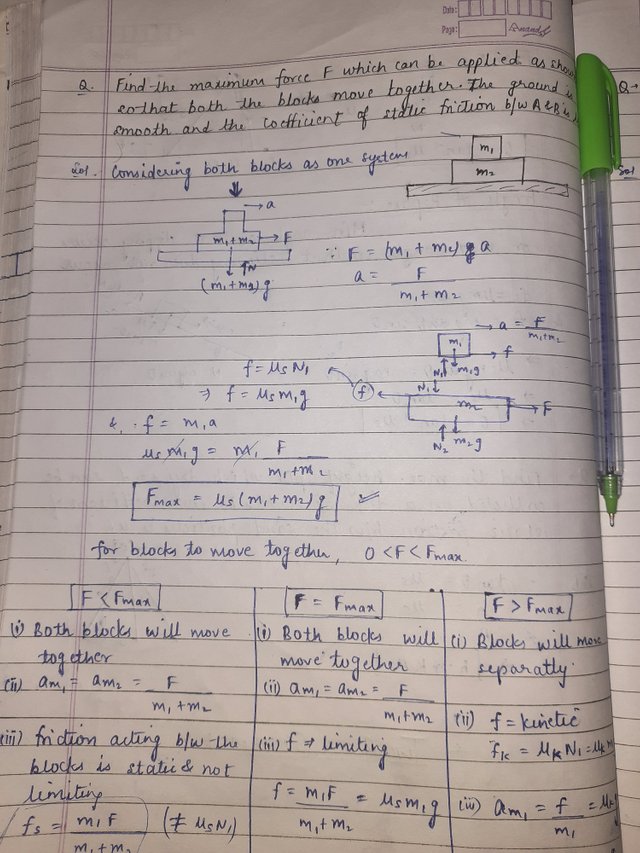 Date:
Page:
Anand
Q. Find the maximum force F which can be applied as shown
so that both the blocks move together. The ground is
smooth and the coefficient of static friction b/w A & B is
Q→
Sol. Considering both blocks as one system
Sol
m₁
m₂
→ a
m₁+m₂ → F
N
(m₁+m₂)g
∵ F = (m₁+m₂) a
a = F/(m₁+m₂)
→ a = F/(m₁+m₂)
m₁
→ f
N₁ m₁g
N₁
f
m₂ → F
N₂ m₂g
f = μₛN₁
⇒ f = μₛm₁g
&, f = m₁a
μₛm₁g = m₁ F/(m₁+m₂)
Fmax = μₛ(m₁+m₂)g
for blocks to move together, 0<F<Fmax.
F < Fmax
(i) Both blocks will move
together
(ii) am₁ = am₂ = F/(m₁+m₂)
(iii) friction acting b/w the
blocks is static & not
limiting
fₛ = m₁F/(m₁+m₂) (≠ μₛN₁)
F = Fmax
(i) Both blocks will
move together
(ii) am₁ = am₂ = F/(m₁+m₂)
(iii) f ⇒ limiting
f = m₁F/(m₁+m₂) = μₛm₁g
F > Fmax
(i) Blocks will move
separatly
(ii) f = kinetic
fₖ = μₖN₁ = μₖ
(iii) am₁ = f/m₁ = μₖ